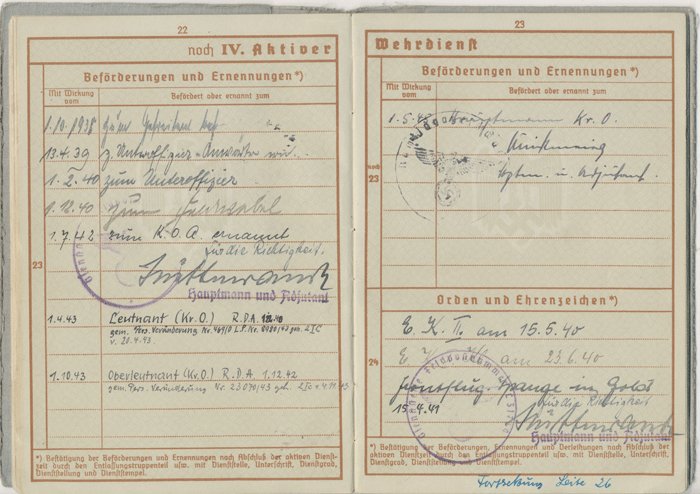 22
noch IV. Aktiver
Beförderungen und Ernennungen*)
Mit Wirkung
vom
Befördert oder ernannt zum
1.10.1938 zum Gefreiten bef.
13.4.39 z. Unteroffizier-Anwärter
1.2.40 zum Unteroffizier
1.12.40 zum Feldwebel
1.7.42 zum K.O.A. ernannt
für die Richtigkeit.
23
Hauptmann und Adjutant
1.4.43 Leutnant (Kr.O.) R.D.A. 1.12.40
gem. Pers. Veränderung Nr.
v. 20.4.43
1.10.43 Oberleutnant (Kr.O.) R.D.A. 1.12.42
gem. Pers. Veränderung Nr. 23070/43 geh.
*) Bestätigung der Beförderungen und Ernennungen nach Abschluß der aktiven Dienst-
zeit durch den Entlassungstruppenteil usw. mit Dienststelle, Unterschrift, Dienstgrad,
Dienststellung und Dienststempel.
23
Wehrdienst
Beförderungen und Ernennungen*)
Mit Wirkung
vom
Befördert oder ernannt zum
Hauptmann Kr.O.
noch
23
Hptm. u. Adjutant.
Orden und Ehrenzeichen*)
E. K. II. am 15.5.40
24
E. K. am 23.6.40
Frontflug-Spange in Gold
15.4.41 für die Richtigkeit
Hauptmann und Adjutant
*) Bestätigung der Beförderungen, Ernennungen und Verleihungen nach Abschluß der
aktiven Dienstzeit durch den Entlassungstruppenteil usw. mit Dienststelle, Unterschrift,
Dienstgrad, Dienststellung und Dienststempel.
Fortsetzung Seite 26